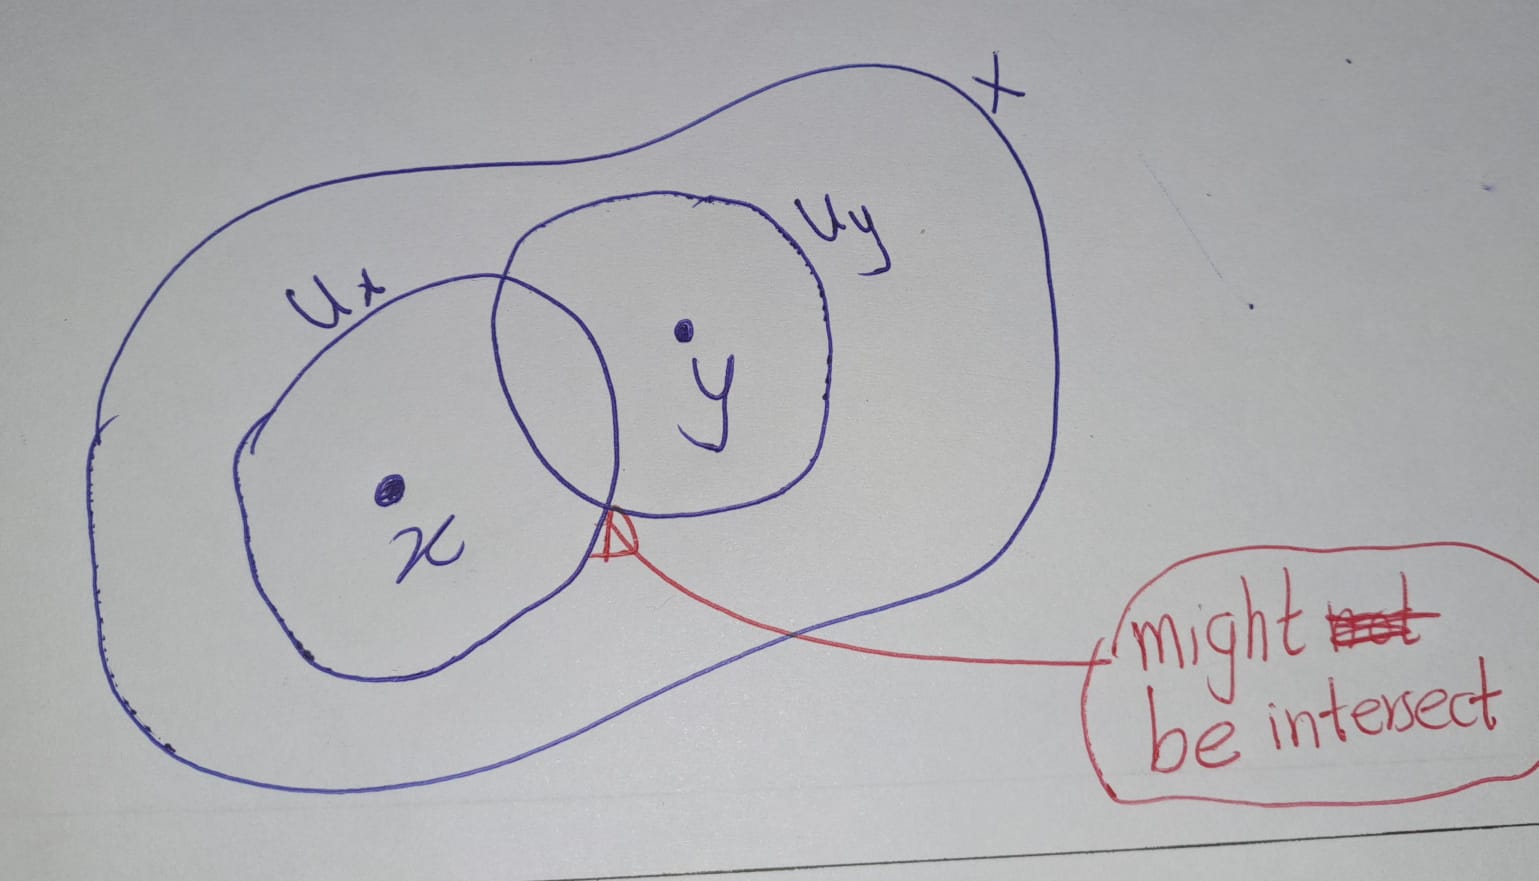 X
Uy
Ux
y
x
might not
be intersect